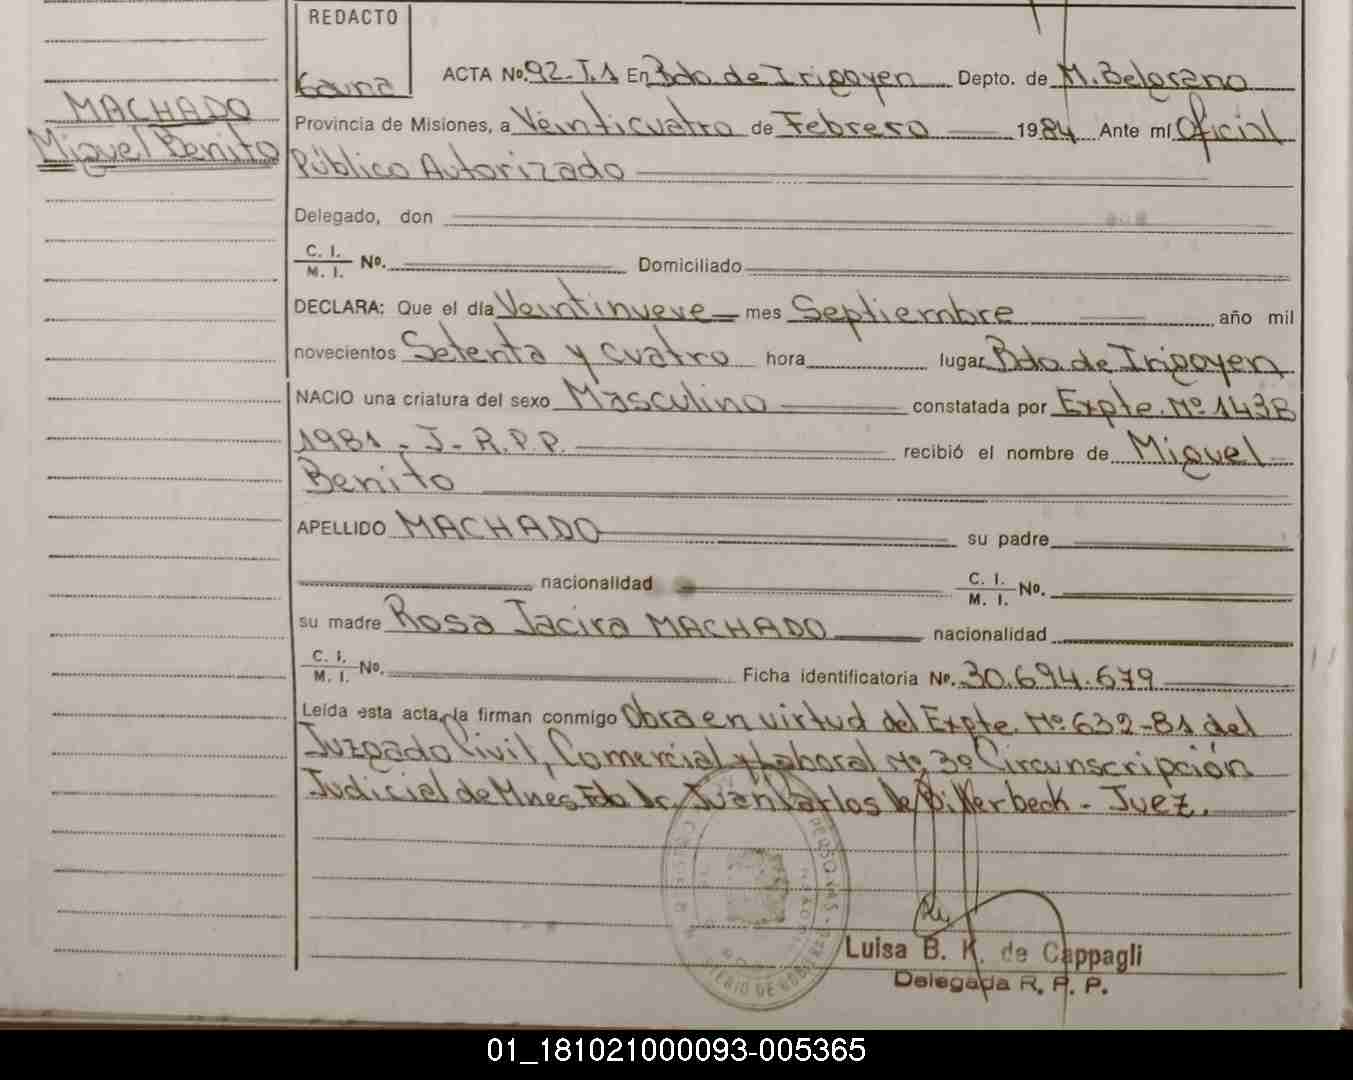 REDACTO
Gauna
ACTA Nº. 92-T.1 En Bdo de Irigoyen Depto. de M. Belgrano
MACHADO
Miguel Benito
Provincia de Misiones, a Veinticuatro de Febrero 1984 Ante mí Oficial
Público Autorizado
Delegado, don
C. I. / M. I. Nº. Domiciliado
DECLARA: Que el día Veintinueve mes Septiembre año mil
novecientos Setenta y cuatro hora lugar Bdo. de Irigoyen
NACIO una criatura del sexo Masculino constatada por Expte. Nº 1438
1981 - J - R.P.P. recibió el nombre de Miguel
Benito
APELLIDO MACHADO su padre
nacionalidad C. I. / M. I. Nº.
su madre Rosa Jacira MACHADO nacionalidad
C. I. / M. I. Nº. Ficha identificatoria Nº. 30.694.679
Leída esta acta, la firman conmigo Obra en virtud del Expte. Nº 632-81 del
Juzgado Civil, Comercial y Laboral Nº 3º Circunscripción
Judicial de Mnes Fdo Dr. Juan Carlos de Billerbeck - Juez.
Luisa B. K. de Cappagli
Delegada R. P. P.
01_181021000093-005365